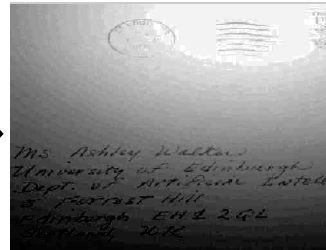 Ms. Ashley Walker
University of Edinburgh
Dept. of Artificial Intell
5 Forrest Hill
Edinburgh EH1 2QL
Scotland, UK